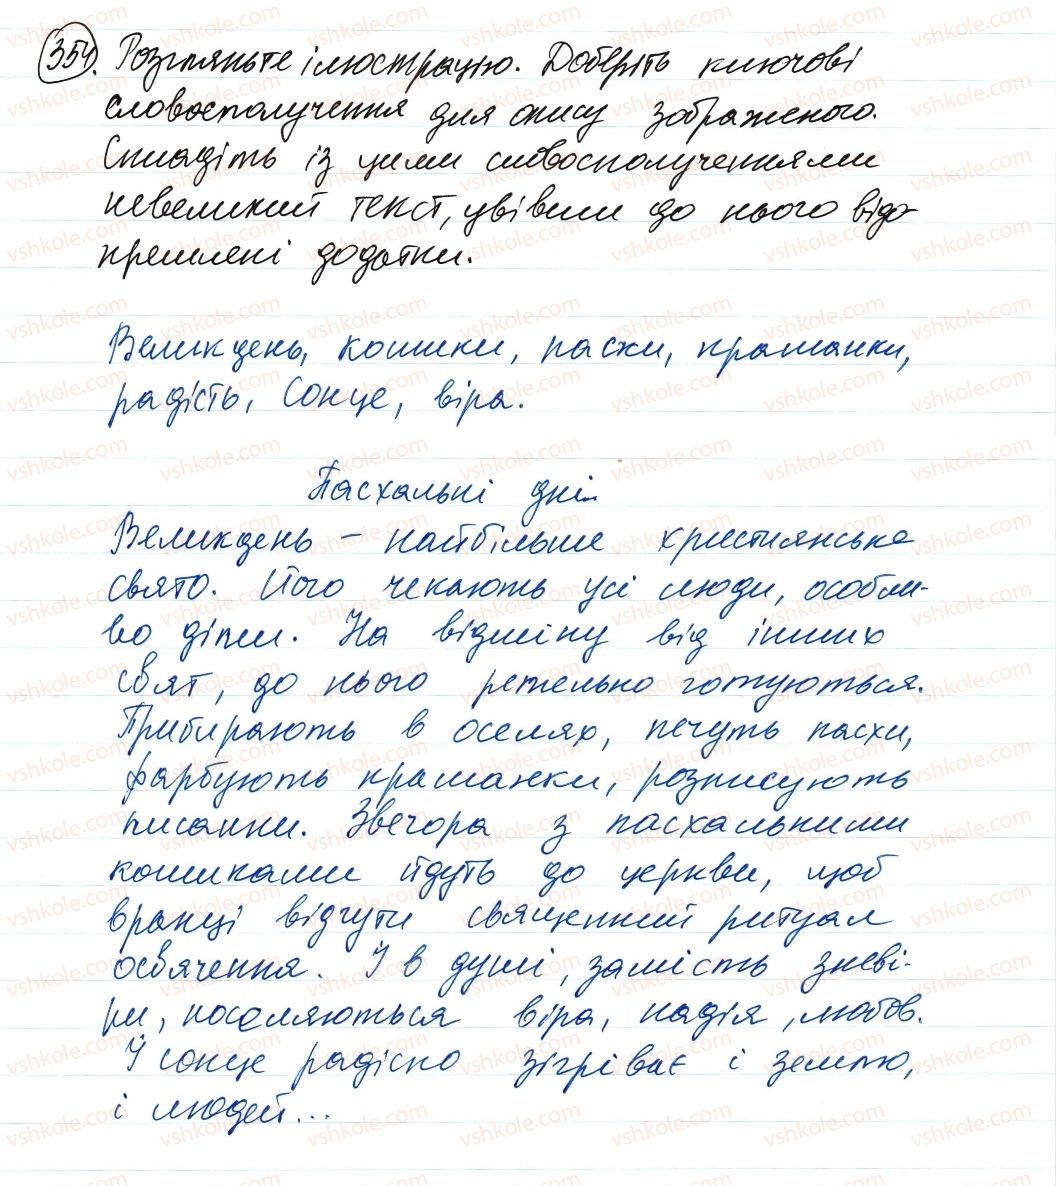 354. Розгляньте ілюстрацію. Доберіть ключові
словосполучення для опису зображеного.
Складіть із цими словосполученнями
невеликий текст, увівши до нього відо-
кремлені додатки.
Великдень, кошики, паски, крашанки,
радість, Сонце, віра.
Пасхальні дні
Великдень – найбільше християнське
свято. Його чекають усі люди, особли-
во діти. На відміну від інших
свят, до нього ретельно готуються.
Прибирають в оселях, печуть пасхи,
фарбують крашанки, розписують
писанки. Звечора з пасхальними
кошиками йдуть до церкви, щоб
вранці відчути священний ритуал
освячення. І в душі, замість зневі-
ри, поселяються віра, надія, любов.
І сонце радісно зігріває і землю,
і людей...